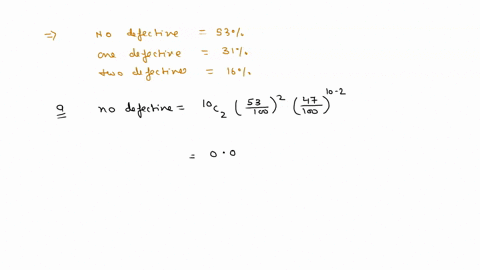 ⇒ No defective = 53%
one defective = 31%
two defectives = 16%
a no defective = ¹⁰C₂ (53/100)² (47/100)¹⁰⁻²
= 0.0